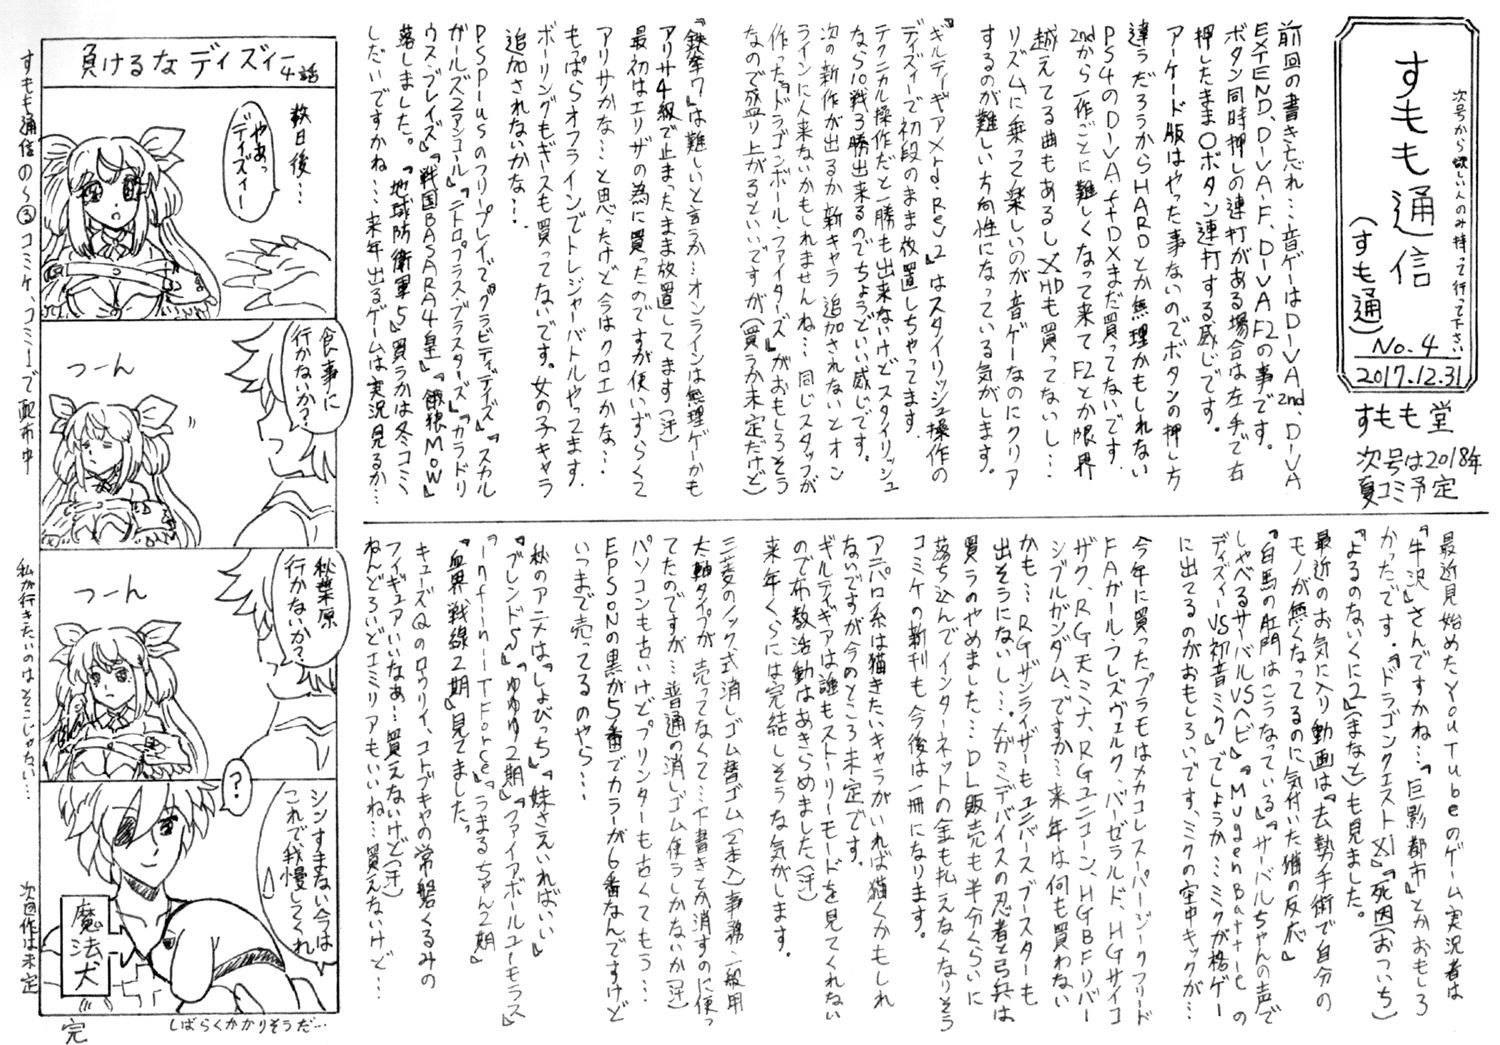 次号から欲しい人のみ持って行って下さい
すもも通信
(すも通)
No.4
2017.12.31
すもも堂
次号は2018年
夏コミ予定
前回の書き忘れ…音ゲーはDIVA2nd、DIVA
EXTEND、DIVA-F、DIVAF2の事です。
ボタン同時押しの連打がある場合は左手で右
押したまま〇ボタン連打する感じです。
アーケード版はやった事ないのでボタンの押し方
違うだろうからHARDとか無理かもしれない
PS4のDIVAftDXまだ買ってないです.
2ndから一作ごとに難しくなって来てF2とか限界
越えてる曲もあるしXHDも買ってないし…
リズムに乗って楽しいのが音ゲーなのにクリア
するのが難しい方向性になっている気がします。
『ギルティギアXrd・Rev2』はスタイリッシュ操作の
ディズィーで初段のまま放置しちゃってます.
テクニカル操作だと一勝も出来ないけどスタイリッシュ
なら10戦3勝出来るのでちょうどいい感じです。
次の新作が出るか新キャラ追加されないとオン
ラインに人来ないかもしれませんね…同じスタッフが
作った『ドラゴンボール・ファイターズ』がおもしろそう
なので盛り上がるといいですが(買うか未定だけど)
『鉄拳7』は難しいと言うか…オンラインは無理ゲーかも
アリサ4級で止まったまま放置してます(汗)
最初はエリザの為に買ったのですが使いずらくて
アリサかな…と思ったけど今はクロエかな…
もっぱらオフラインでトレジャーバトルやってます.
ボーリングもギースも買ってないです。女の子キャラ
追加されないかな…
PSPlusのフリープレイで『グラビティデイズ』『スカル
ガールズ2アンコール』『ニトロプラス・ブラスターズ』『カラドリ
ウス・ブレイズ』『戦国BASARA4皇』『餓狼MOW』
落しました。『地球防衛軍5』買うかは冬コミ
しだいですかね…来年出るゲームは実況見るか…
最近見始めたYouTubeのゲーム実況者は
『牛沢』さんですかね…『巨影都市』とかおもしろ
かったです.『ドラゴンクエストXI』『死因(おついち)』
『よるのないくに2(まなと)』も見ました。
最近のお気に入り動画は『去勢手術で自分の
モノが無くなってるのに気付いた猫の反応』
『白馬の肛門はこうなっている』『サーバルちゃんの声で
しゃべるサーバルVSヘビ』『MugenBattleの
ディズィーVS初音ミク』でしょうか…ミクが格ゲー
に出てるのがおもしろいです、ミクの空中キックが…
今年に買ったプラモはメカコレスーパージークフリード
FAガールフレズヴェルク、バーゼラルド、HGサイコ
ザク、RG天ミナ、RGユニコーン、HGBFリバー
シブルガンダム、ですか…来年は何も買わない
かも…RGザンライザーもユニバースブースターも
出そうにないし…だがミデバイスの忍者と弓兵は
買うのやめました…DL販売も半分くらいに
落ち込んでインターネットの金も払えなくなりそう
コミケの新刊も今後は一冊になります。
アニパロ系は描きたいキャラがいれば描くかもしれ
ないですが今のところ未定です。
ギルティギアは誰もストーリーモードを見てくれない
ので布教活動はあきらめました(汗)
来年くらには完結しそうな気がします.
三菱のノック式消しゴム替ゴム(2本入)事務一般用
太軸タイプが売ってなくて…下書きとか消すのに使っ
てたのですが…普通の消しゴム使うしかないか(汗)
パソコンも古いけどプリンターも古くてもう…
EPSONの黒が5番でカラーが6番なんですけど
いつまで売ってるのやら…
秋のアニメは『しょびっち』『妹さえいればいい』
『ブレンドS』『ゆゆゆ2期』『ファイアボールユーモラス』
『infiniTForce』『うまるちゃん2期』
『血界戦線2期』見てました。
キューズQのロウリィ、コトブキヤの常磐くるみの
フィギュアいいなぁ…買えないけど(汗)
ねんどろいどエミリアもいいね…買えないけど…
負けるなディズィー4話
数日後…
やあっ
ディズィー
食事に
行かないか?
つーん
秋葉原
行かないか?
つーん
?
シンすまない今は
これで我慢してくれ
魔法犬
しばらくかかりそうだ…
完
すもも通信の1~③コミケ、コミ1で配布中
私が行きたいのはそこじゃない…
次回作は未定